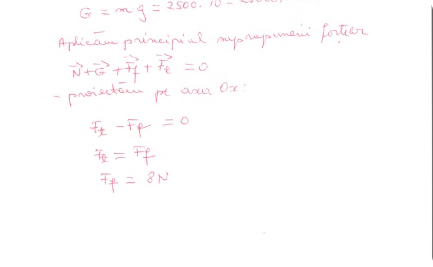 G = m g = 2500 · 10 = 25000
Aplicăm principiul suprapunerii forțelor
N⃗ + G⃗ + F⃗f + F⃗t = 0
- proiectăm pe axa Ox:
Ft - Ff = 0
Ft = Ff
Ff = 8N